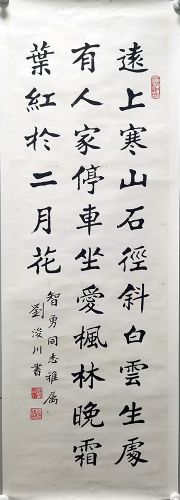 遠上寒山石徑斜白雲生處
有人家停車坐愛楓林晚霜
葉紅於二月花
智勇同志雅属
劉浚川書